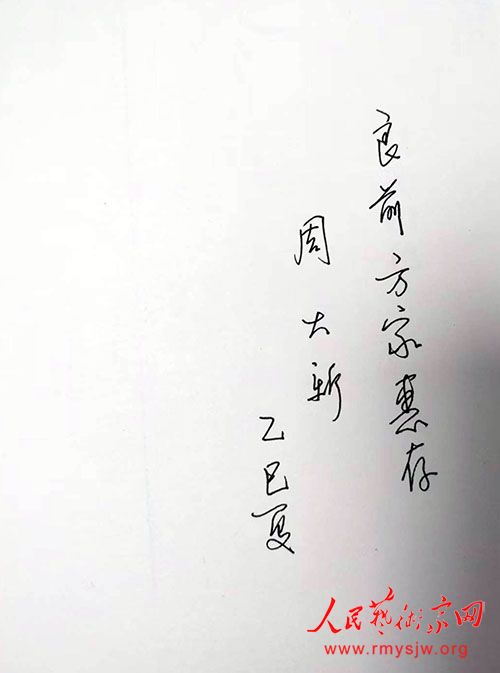 良前方家惠存
周大新
乙巳夏
人民艺术家网
www.rmysjw.org